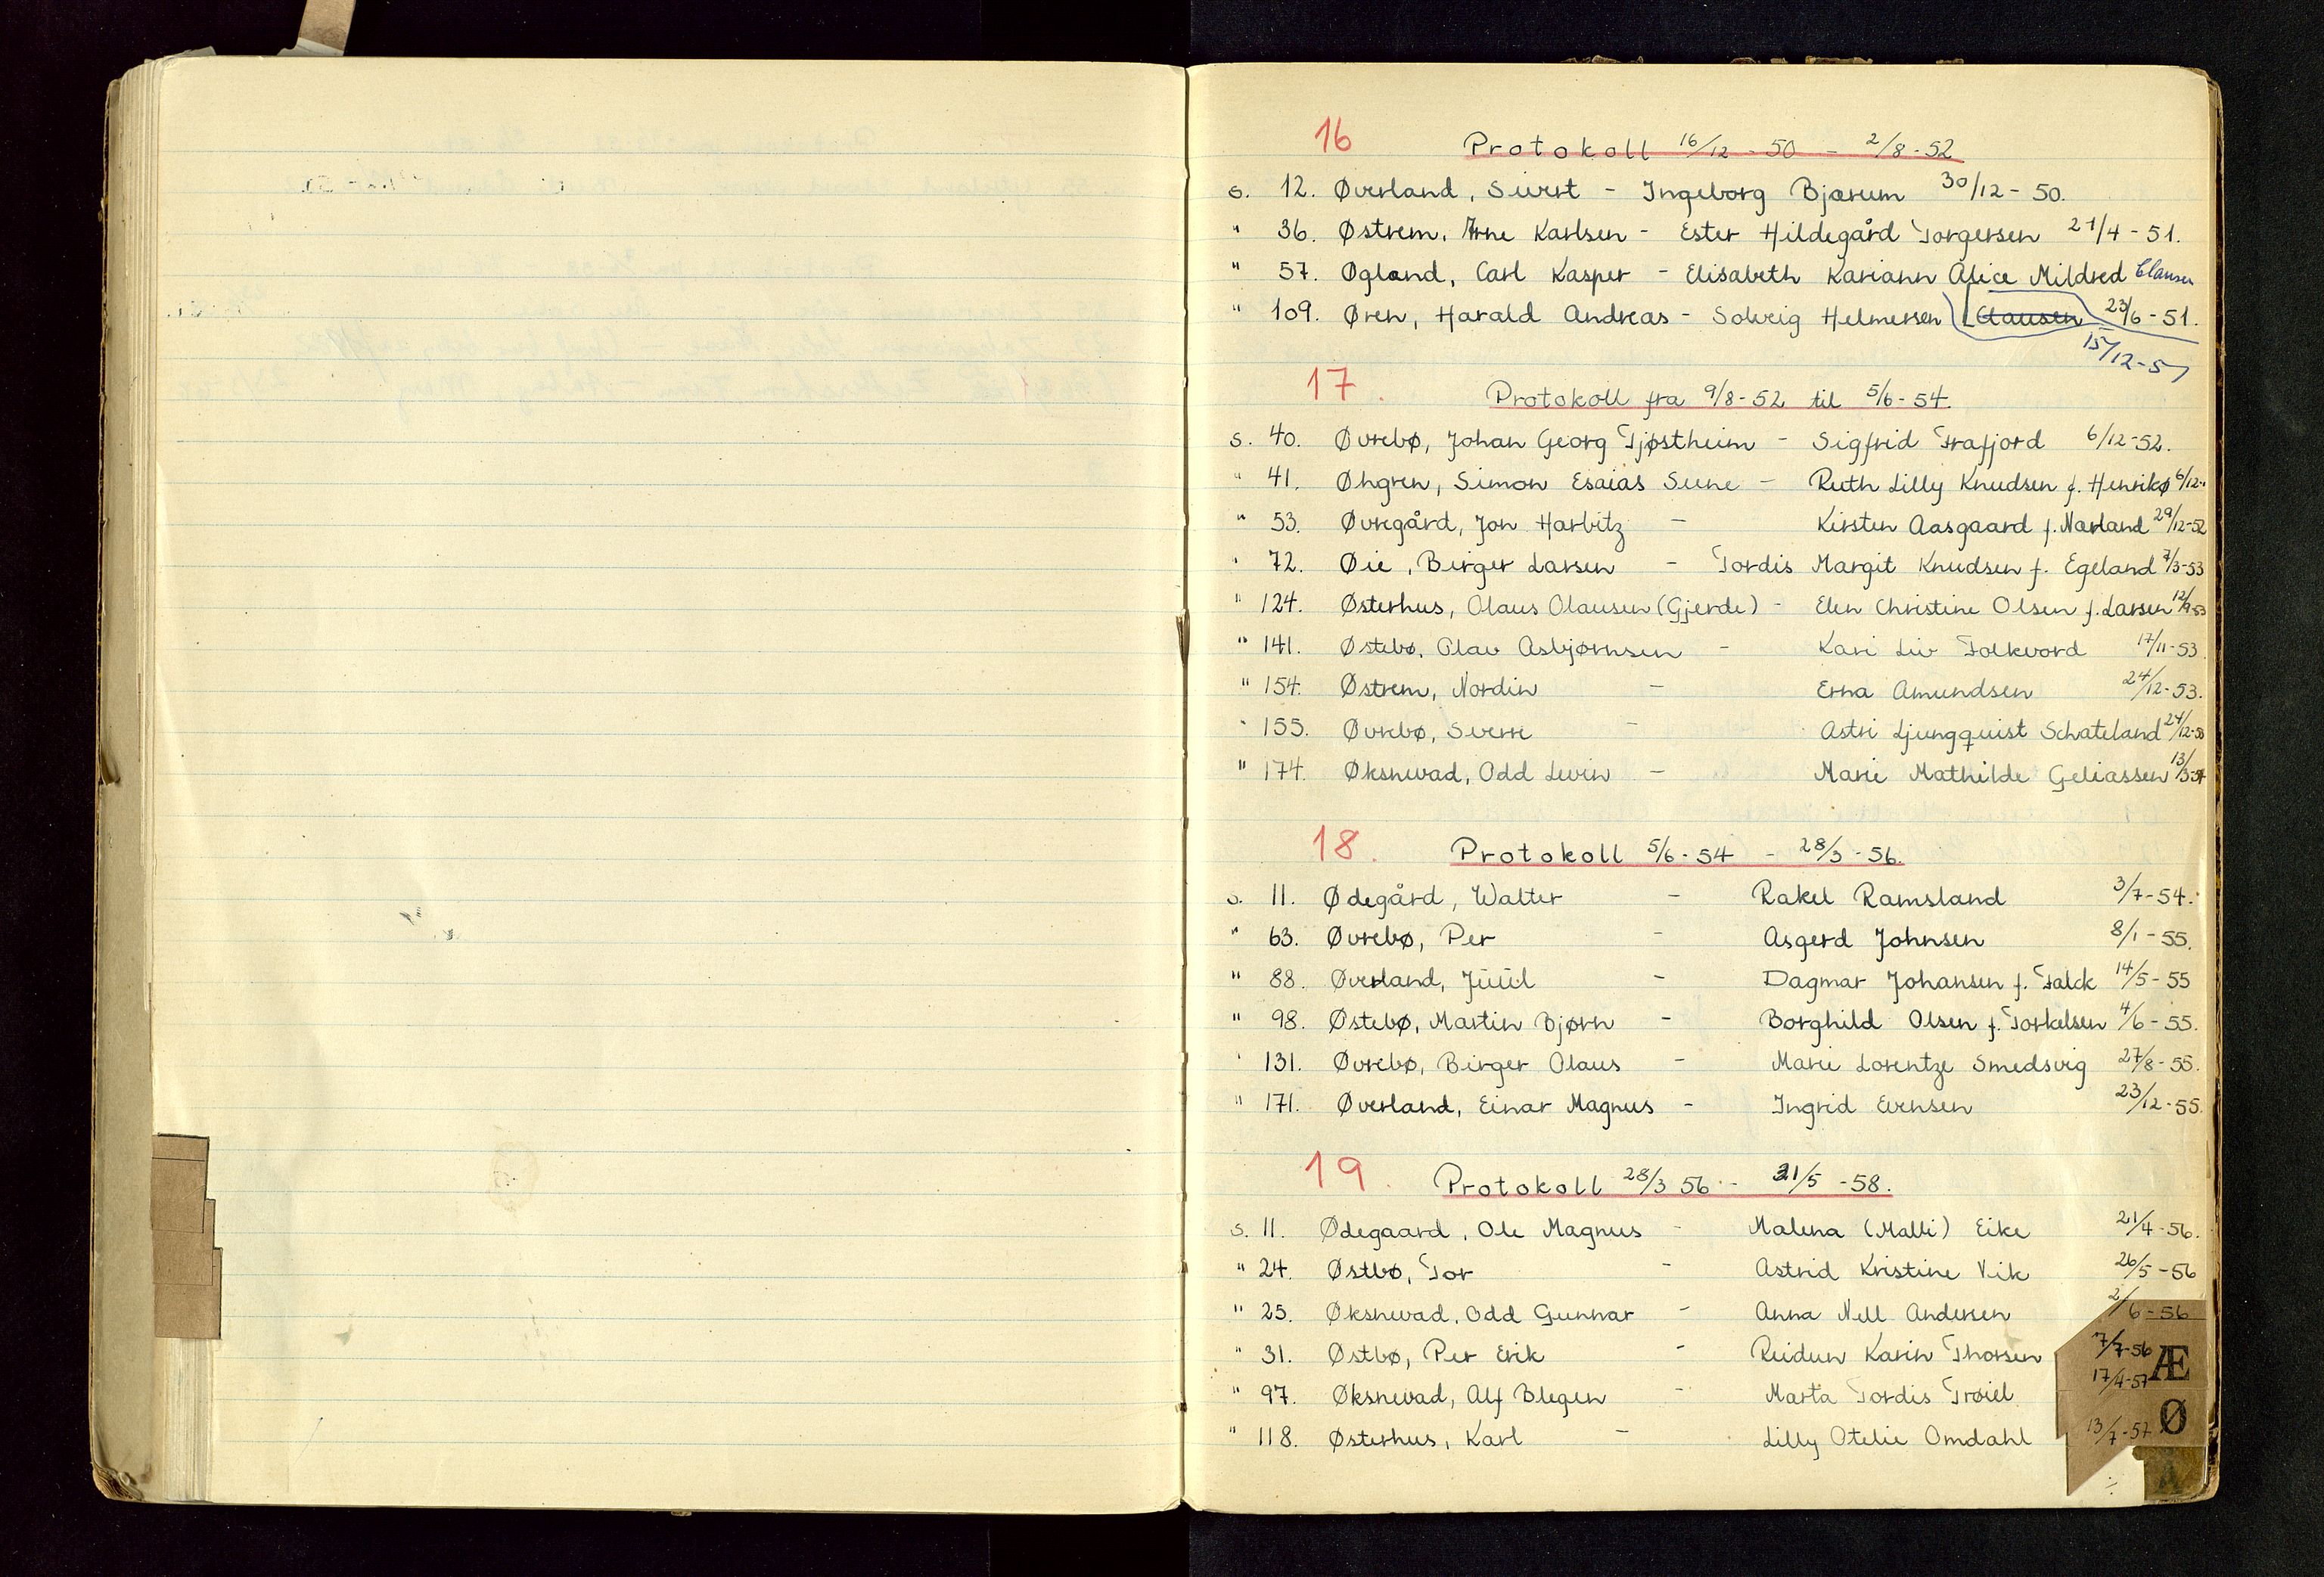 16
Protokoll 16/12 - 50 - 2/8 - 52
s. 12. Øverland, Sivert - Ingeborg Bjærum 30/12 - 50.
" 36. Østrem, Arne Karlsen - Ester Hildegård Torgersen 21/4 - 51.
" 57. Øgland, Carl Kasper - Elisabeth Kariann Alice Mildred Clausen
" 109. Øren, Harald Andreas - Solveig Helmersen Clausen 23/6 - 51.
15/12 - 51
17.
Protokoll fra 9/8 - 52 til 5/6 - 54.
s. 40. Øvrebø, Johan Georg Tjøstheim - Sigfrid Frafjord 6/12 - 52.
" 41. Øhgren, Simon Esaias Sune - Ruth Lilly Knudsen f. Henrikø 6/12
" 53. Øvregård, Jon Harbitz - Kirsten Aasgaard f. Narland 29/12 - 52
" 72. Øie, Birger Larsen - Tordis Margit Knudsen f. Egeland 7/3 - 53
" 124. Østerhus, Olaus Olausen (Gjerde) - Elen Christine Olsen f. Larsen 12/9 - 53
" 141. Østebø, Olav Asbjørnsen - Kari Liv Folkvord 17/11 - 53.
" 154. Østrem, Nordin - Erna Amundsen 24/12 - 53.
" 155. Øvrebø, Sverre - Astri Ljungquist Schateland 24/12 - 53
" 174. Øksnevad, Odd Levin - Marie Mathilde Geliassen 13/3 - 54
18.
Protokoll 5/6 - 54 - 28/3 - 56.
s. 11. Ødegård, Walter - Rakel Ramsland 3/7 - 54.
" 63. Øvrebø, Per - Asgerd Johnsen 8/1 - 55.
" 88. Øverland, Juul - Dagmar Johansen f. Falck 14/5 - 55
" 98. Østebø, Martin Bjørn - Borghild Olsen f. Torkelsen 4/6 - 55.
" 131. Øvrebø, Birger Olaus - Marie Lorentze Smedsvig 27/8 - 55.
" 171. Øverland, Einar Magnus - Ingrid Evensen 23/12 - 55.
19.
Protokoll 28/3 56 - 31/5 - 58.
s. 11. Ødegaard, Ole Magnus - Malena (Malli) Eike 21/4 - 56.
" 24. Østbø, Tor - Astrid Kristine Vik 26/5 - 56
" 25. Øksnevad, Odd Gunnar - Anna Nell Andersen 2/6 - 56
" 31. Østbø, Per Erik - Reidun Karin Thorsen 7/7 - 56
" 97. Øksnevad, Alf Blegen - Marta Tordis Trøiel 17/4 - 57
" 118. Østerhus, Karl - Lilly Otelie Omdahl 13/7 - 57
Æ
Ø